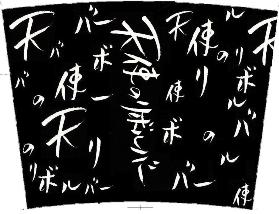 天使のリボルバー
天
バー
バ
ボ
使
の
ー
天
リ
の
リボルバー
天
使
の
ル
リ
使
ボ
ボ
ル
バ
ー
の
ル
バー
天
使